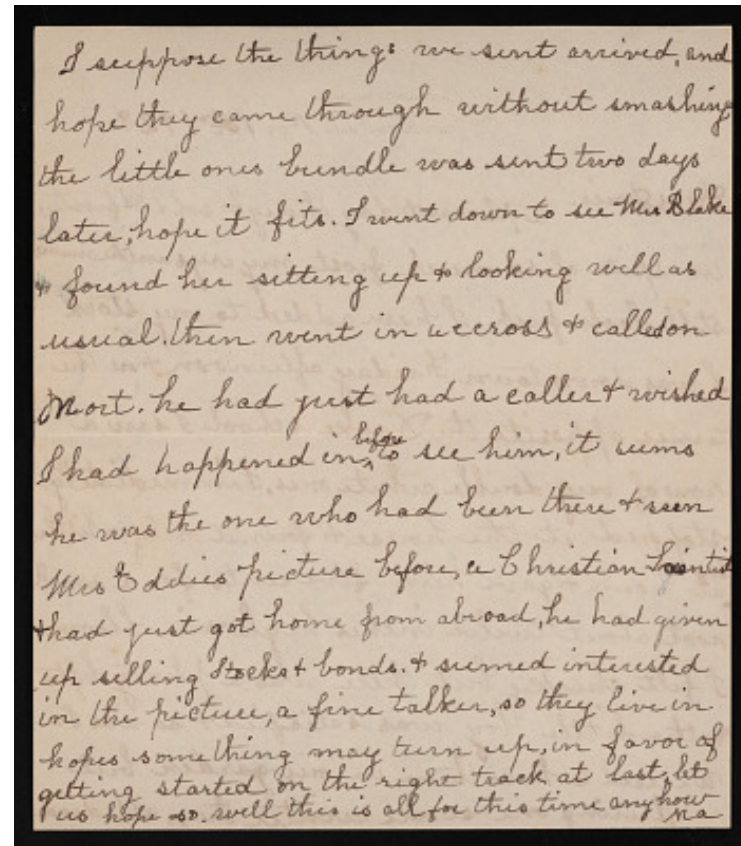 I suppose the things we sent arrived, and
hope they came through without smashing
the little ones bundle was sent two days
later, hope it fits. I went down to see Mrs Blake
& found her sitting up & looking well as
usual. then went in accross & called on
Mort. he had just had a caller & wished
I had happened in before to see him, it seems
he was the one who had been there & seen
Mrs Eddies picture before, a Christian Scientist
& had just got home from abroad, he had given
up selling Stocks & bonds. & seemed interested
in the picture, a fine talker, so they live in
hopes something may turn up, in favor of
getting started on the right track at last, let
us hope so. well this is all for this time anyhow
Ma